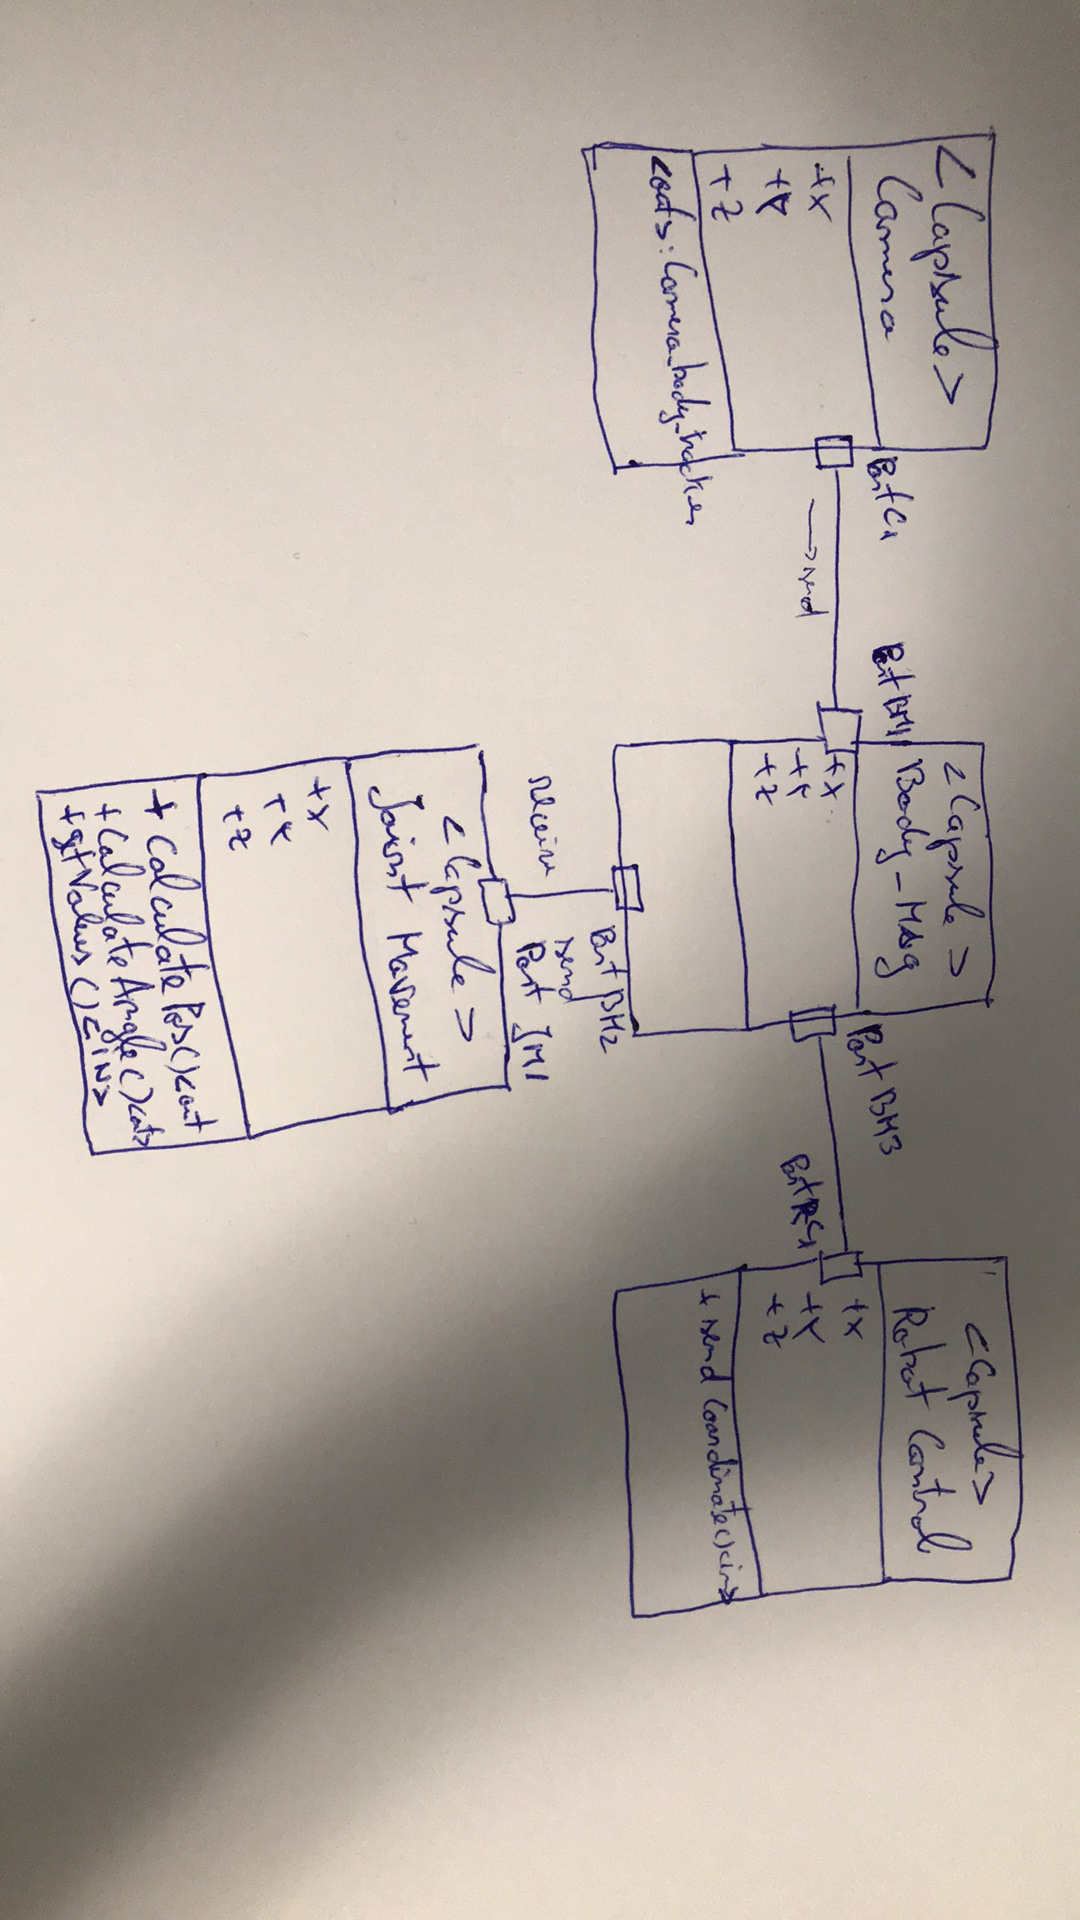 <Capsule>
Camera
+x
+y
+z
<out>: Camera_body_tracker
Port C1
→ send
Port BM1
<Capsule>
Body_Msg
+x
+y
+z
Port BM2
send
receive
Port BM3
Port JM1
<Capsule>
Joint Movement
+x
+y
+z
+ Calculate Pos()<out
+ Calculate Angle()<out>
+ getValues()<in>
Port RC1
<Capsule>
Robot Control
+x
+y
+z
+ send Coordinate()<in>